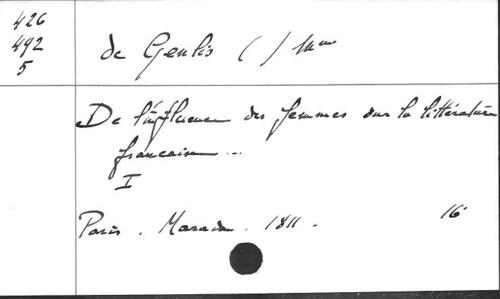 426
492
5
de Genlis ( ) Mme
De l'influence des femmes sur la littérature
française ...
I
Paris. Maradan. 1811. 16°